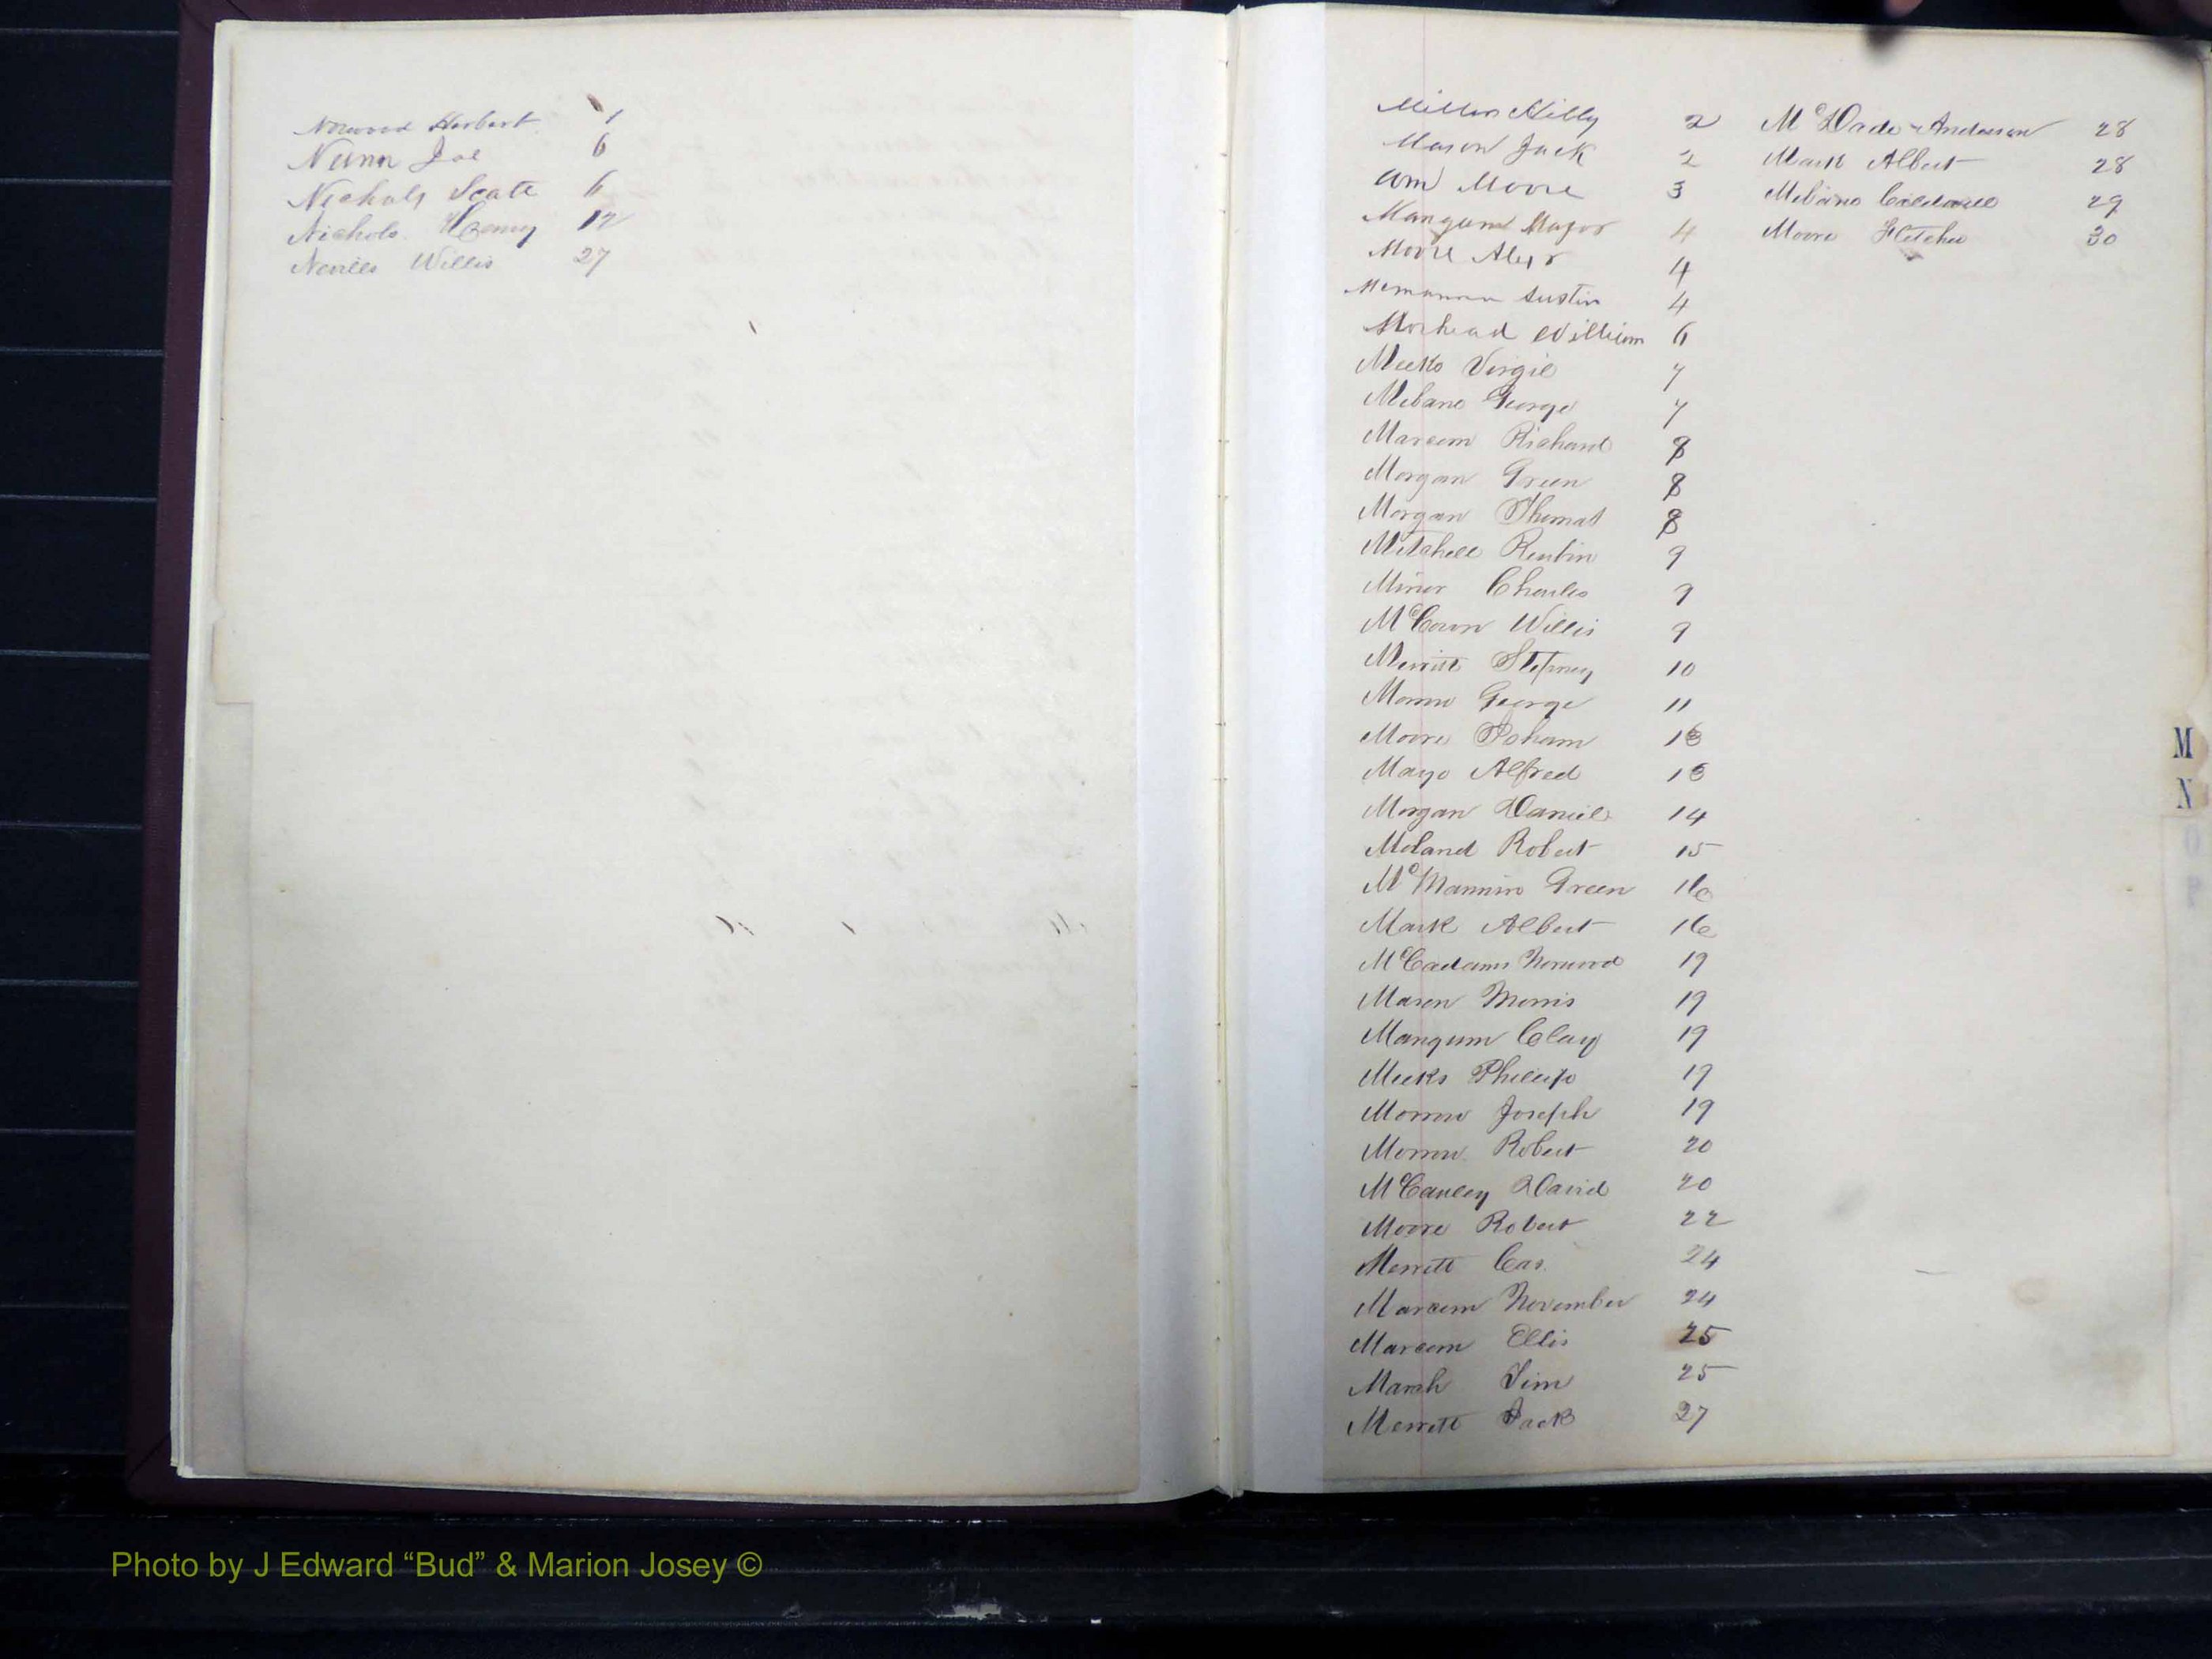 Norwood Herbert 1
Nunn Joe 6
Nichols Scate 6
Nichols Henry 12
Nevills Willis 27
Miller Hilly 2
Mason Jack 2
Wm Moore 3
Mangum Major 4
Moore Alexr 4
Austin 4
Morhead William 6
Meeks Virgil 7
Mebane George 7
Marcom Richard 8
Morgan Green 8
Morgan Thomas 8
Mitchell Reubin 9
Minor Charles 9
McCown Willis 9
Merritt Stepney 10
Morrow George 11
Moore Isham 13
Mayo Alfred 13
Morgan Daniel 14
Moland Robert 15
McMannin Green 16
Mark Albert 16
McCadams Norwood 19
Mason Morris 19
Mangum Clay 19
Meeks Phillip 19
Morrow Joseph 19
Morrow Robert 20
McCauley David 20
Moore Robert 22
Merritt Cas. 24
Marcom November 24
Marcom Ellis 25
Marsh Jim 25
Merritt Jack 27
McDade Anderson 28
Mark Albert 28
Mebane 29
Moore Fletcher 30
M
N
O
P
Photo by J Edward “Bud” & Marion Josey ©